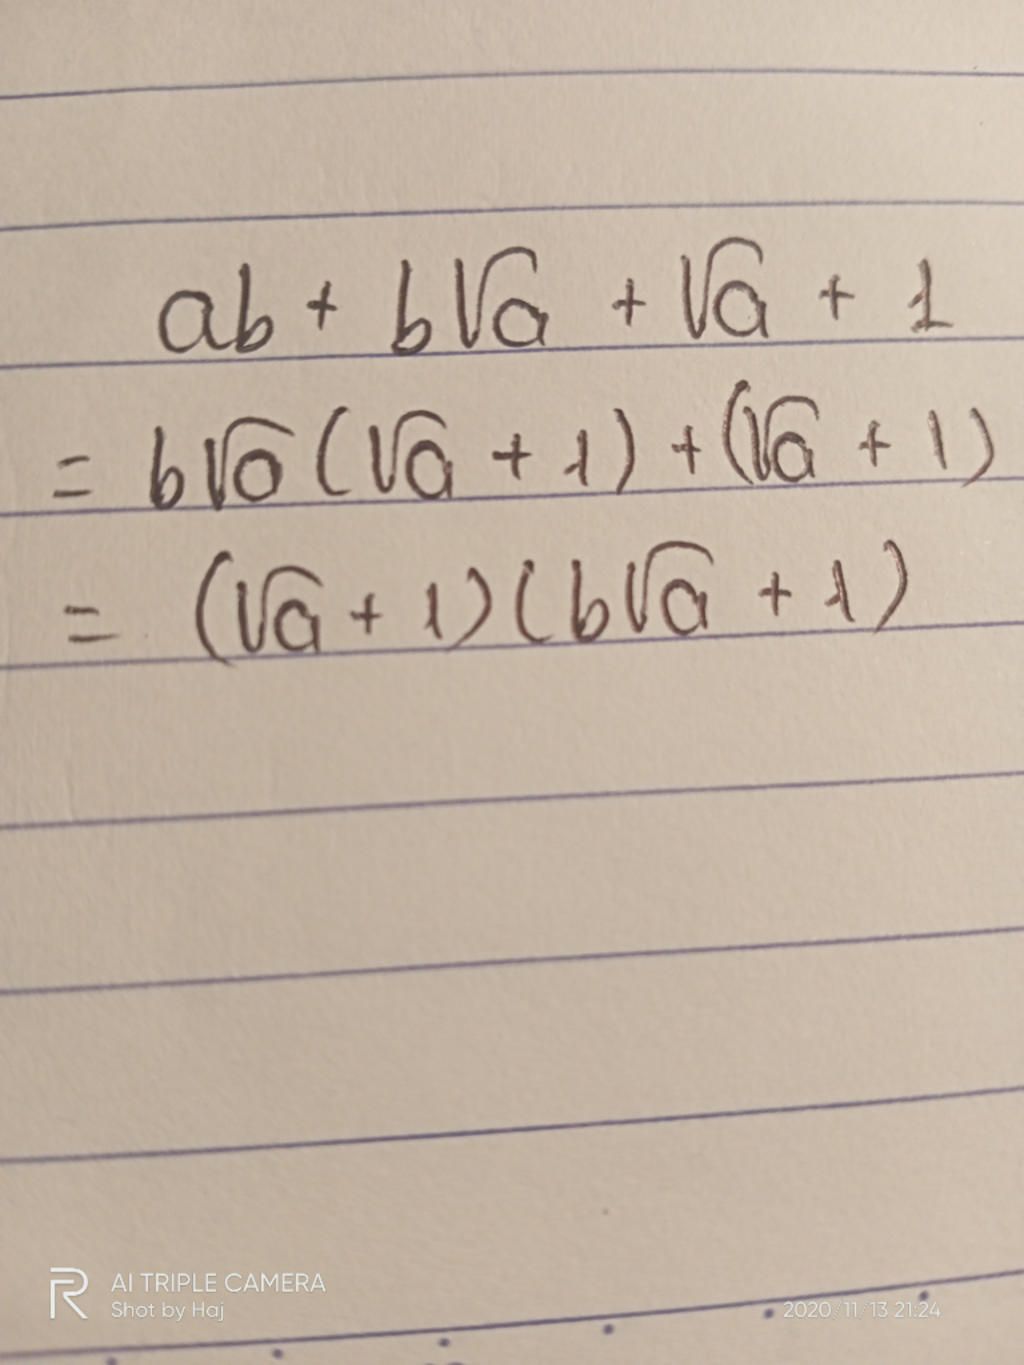 ab + b√a + √a + 1
= b√a (√a + 1) + (√a + 1)
= (√a + 1) (b√a + 1)
AI TRIPLE CAMERA
Shot by Haj
2020/11/13 21:24